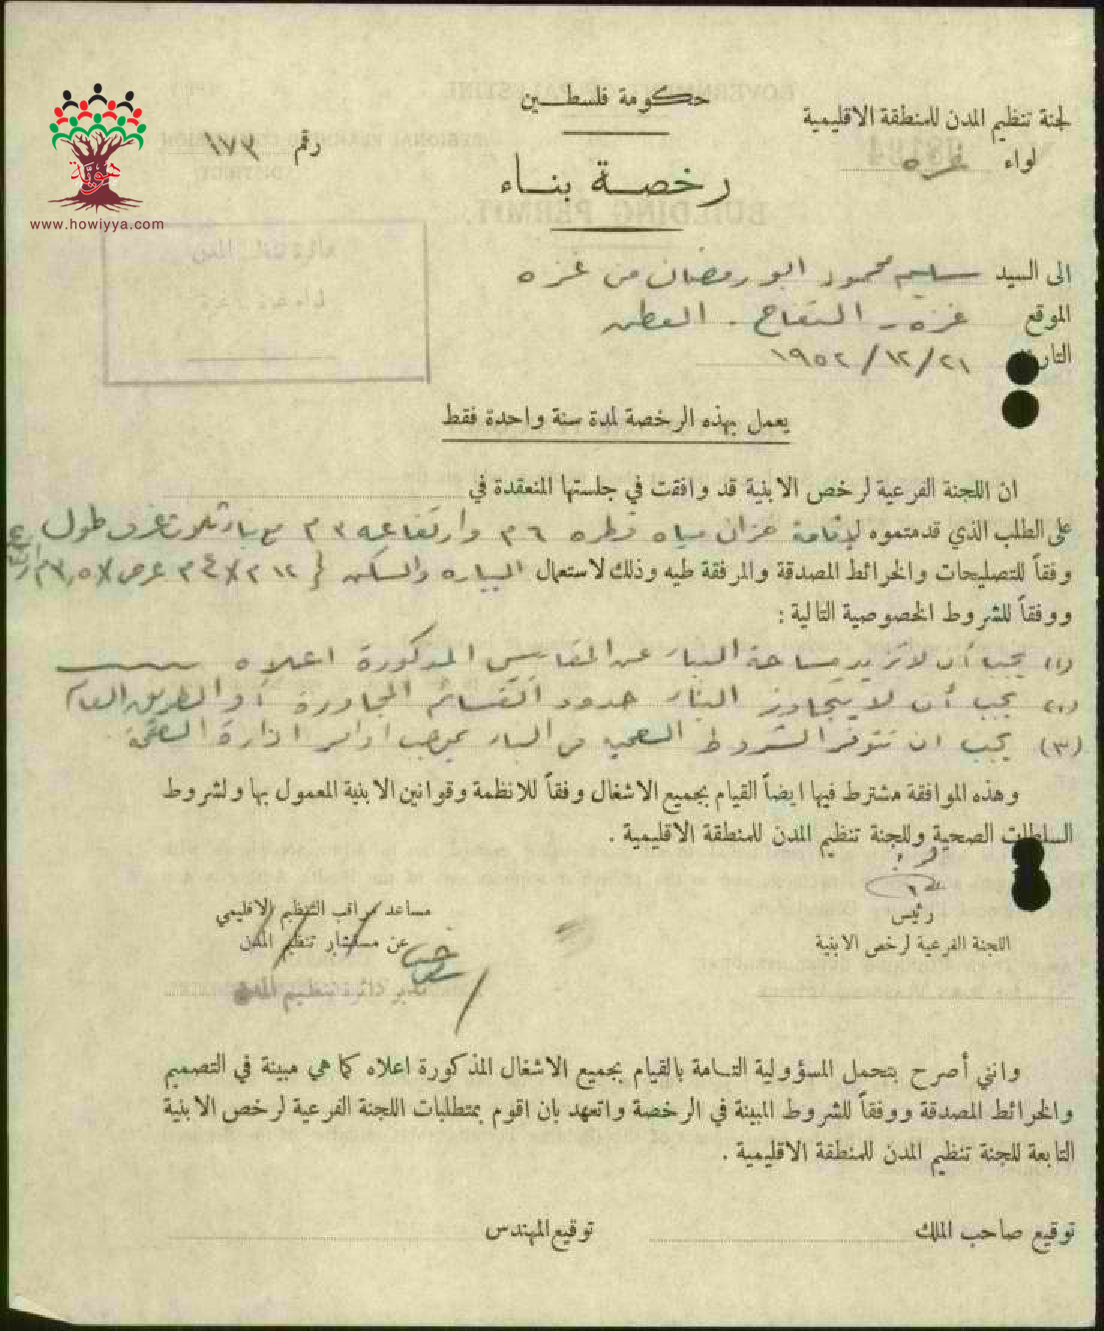 حكومة فلسطين
لجنة تنظيم المدن للمنطقة الاقليمية
لواء غزه
رقم ١٧٣
رخصة بناء
هوية
www.howiyya.com
الى السيد سليم محمود ابو رمضان من غزه
الموقع غزه - التفاح - العطن
٢١/١٢/١٩٥٢
يعمل بهذه الرخصة لمدة سنة واحدة فقط
ان اللجنة الفرعية لرخص الابنية قد وافقت في جلستها المنعقدة في
على الطلب الذي قدمتموه لإقامة خزان مياه قطره ٦ م وارتفاعه ٣ م مع بناء ثلاث غرف طول
وفقاً للتصليحات والخرائط المصدقة والمرفقة طيه وذلك لاستعمال البياره والسكن
ووفقاً للشروط الخصوصية التالية :
(١) يجب أن لا تزيد مساحة البناء عن المقاييس المذكورة اعلاه
(٢) يجب أن لا يتجاوز البناء حدود القسائم المجاورة أو الطريق العام
(٣) يجب ان تتوفر الشروط الصحية في البناء بموجب اوامر ادارة الصحة
وهذه الموافقة مشترط فيها ايضاً القيام بجميع الاشغال وفقاً للانظمة وقوانين الابنية المعمول بها ولشروط
السلطات الصحية وللجنة تنظيم المدن للمنطقة الاقليمية .
رئيس
اللجنة الفرعية لرخص الابنية
مساعد مراقب التنظيم الاقليمي
عن مستشار تنظيم المدن
مدير دائرة تنظيم المدن
وانني أصرح بتحمل المسؤولية التامة بالقيام بجميع الاشغال المذكورة اعلاه كما هي مبينة في التصميم
والخرائط المصدقة ووفقاً للشروط المبينة في الرخصة واتعهد بان اقوم بمتطلبات اللجنة الفرعية لرخص الابنية
التابعة للجنة تنظيم المدن للمنطقة الاقليمية .
توقيع صاحب الملك
توقيع المهندس